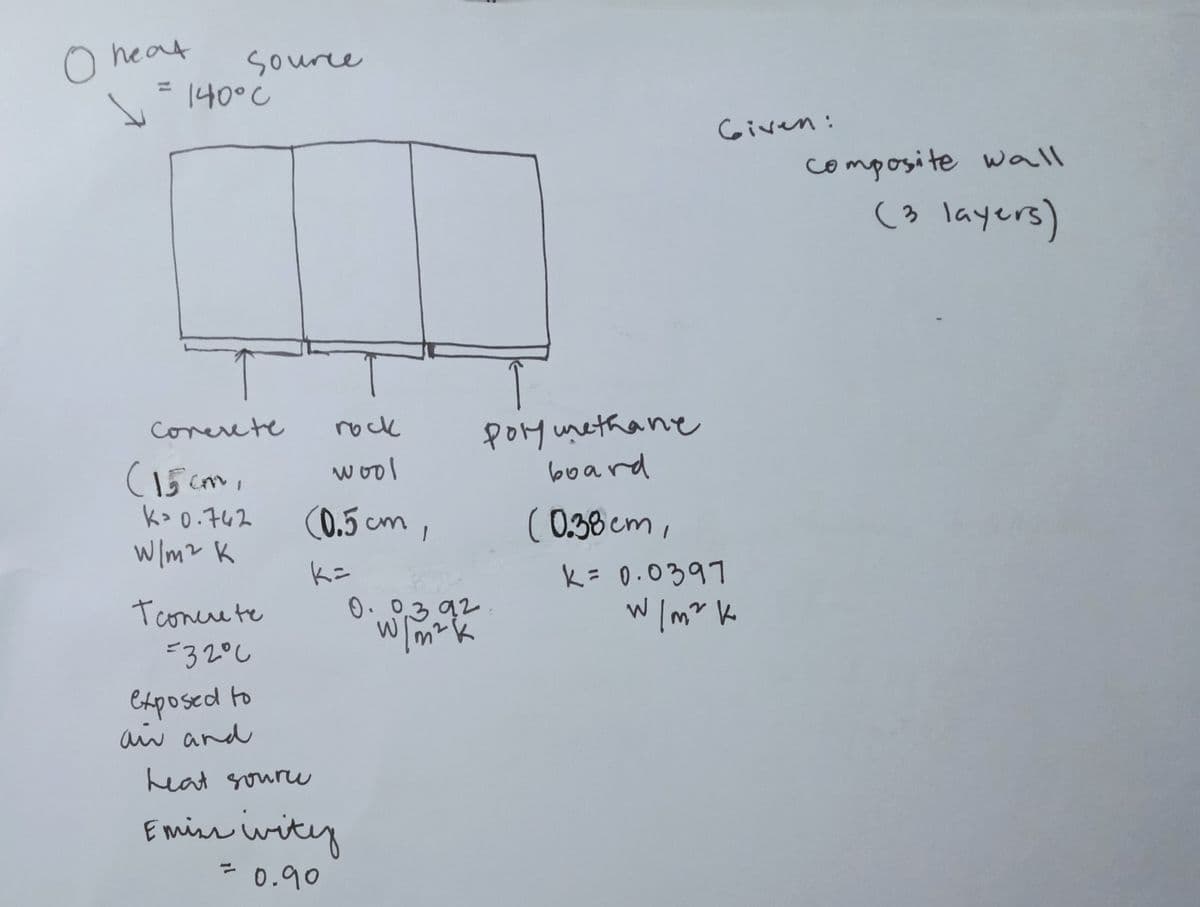 heat source
= 140°C
Given:
composite wall
(3 layers)
concrete
(15 cm,
K= 0.762
W/m² K
Tconcrete
=32°C
exposed to
air and
heat source
Emissivity
= 0.90
rock
wool
(0.5 cm,
k=
0.0392
W/m²k
polyurethane
board
(0.38cm,
k= 0.0397
W/m² k